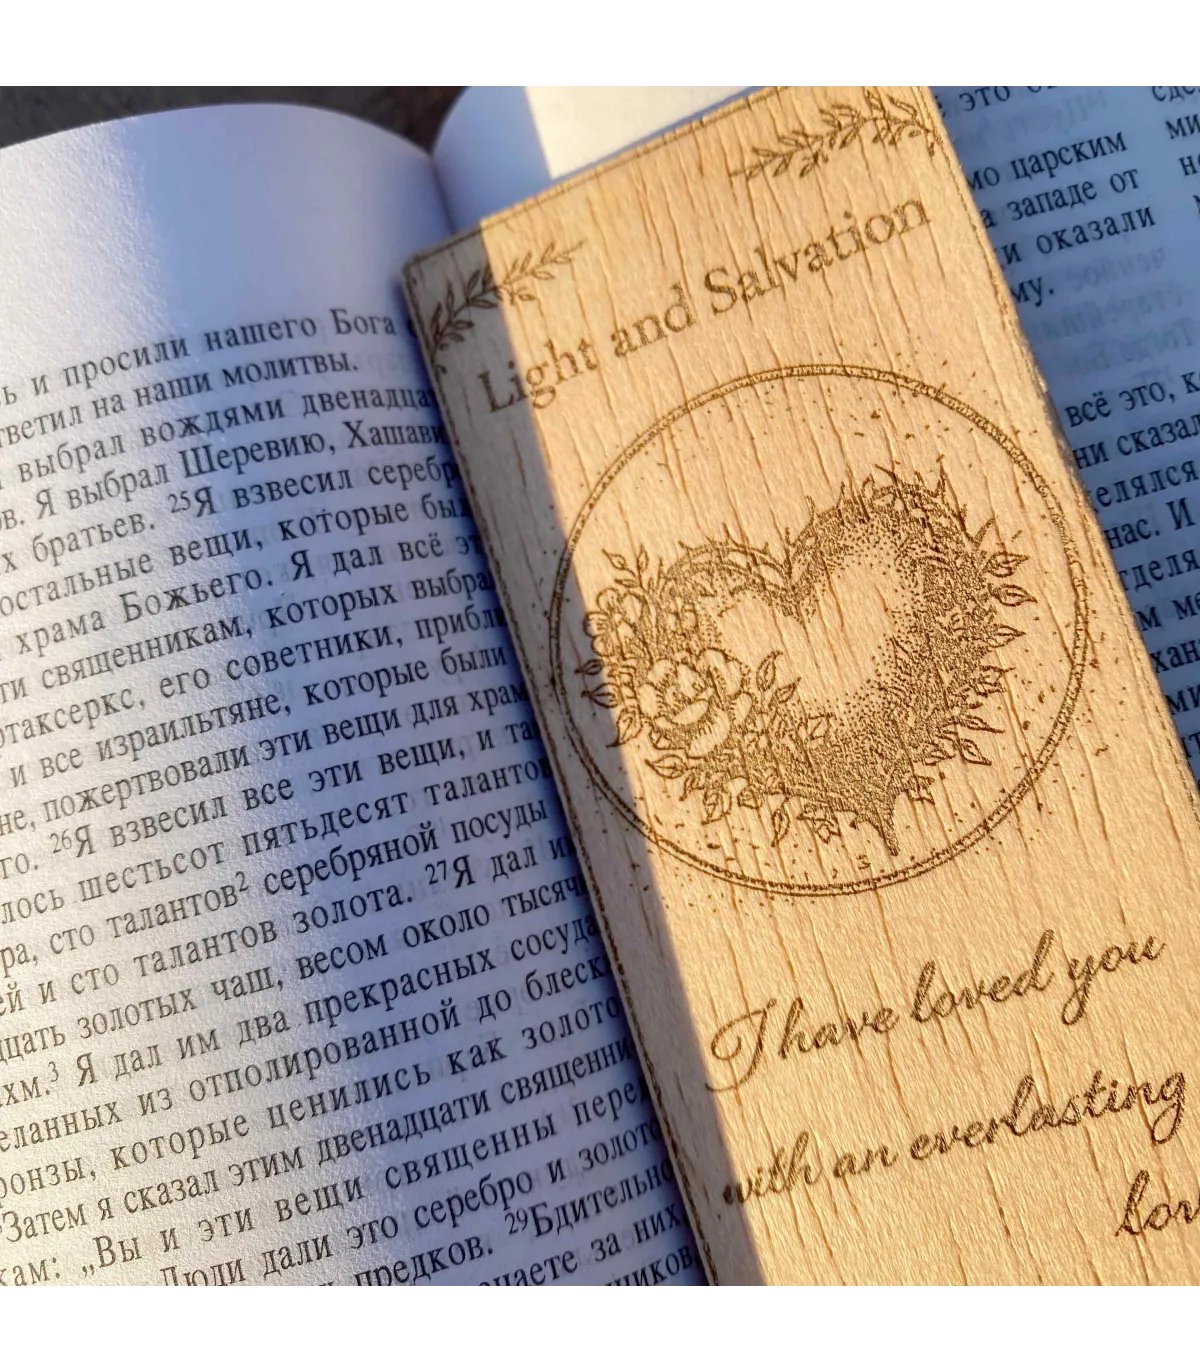 ь и просили нашего Бога
тветил на наши молитвы.
выбрал вождями двенадца
ов. Я выбрал Шеревию, Хашави
х братьев. ²⁵Я взвесил серебр
остальные вещи, которые бы
храма Божьего. Я дал всё э
ти священникам, которых выбра
ртаксеркс, его советники, прибл
и все израильтяне, которые были
не, пожертвовали эти вещи для храм
го. ²⁶Я взвесил все эти вещи, и та
лось шестьсот пятьдесят таланто
ра, сто талантов² серебряной посуды
ей и сто талантов золота. ²⁷Я дал и
дцать золотых чаш, весом около тысяч
ахм.³ Я дал им два прекрасных сосуда
еланных из отполированной до блеск
ронзы, которые ценились как золото
Затем я сказал этим двенадцати священни
кам: „Вы и эти вещи священны перед
Люди дали это серебро и золото
предков. ²⁹Бдительно
за них
ников
Light and Salvation
I have loved you
with an everlasting
lov
это
мо царским
а западе от
и оказали
му.
всё это, к
ни сказал
елялся
нас. И
тделя
м ме
хан
ми